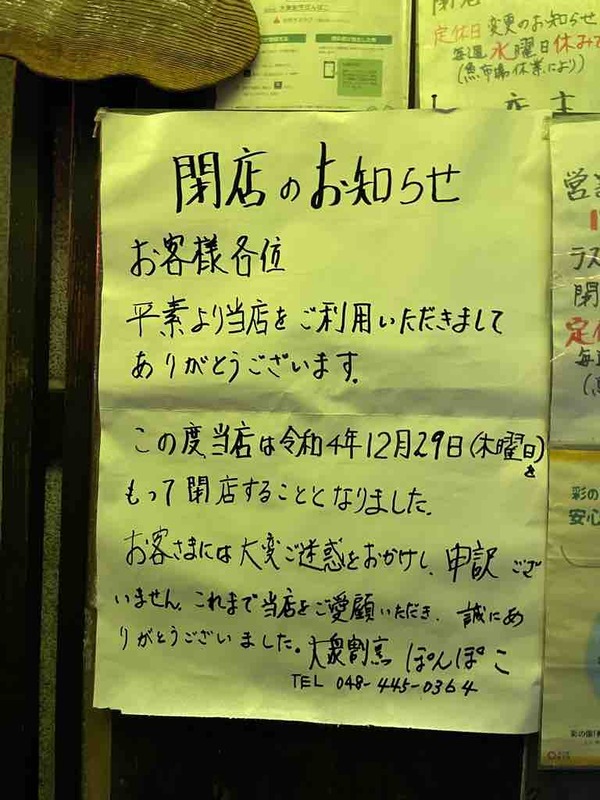 定休日変更のお知らせ
毎週水曜日休みで
(魚市場休業により)
閉店のお知らせ
お客様各位
平素より当店をご利用いただきまして
ありがとうございます。
この度当店は令和4年12月29日(木曜日)を
もって閉店することとなりました。
お客さまには大変ご迷惑をおかけし、申訳ござ
いません。これまで当店をご愛顧いただき、誠にあ
りがとうございました。大衆割烹 ぽんぽこ
TEL 048-445-0364
ラス
彩の
安心